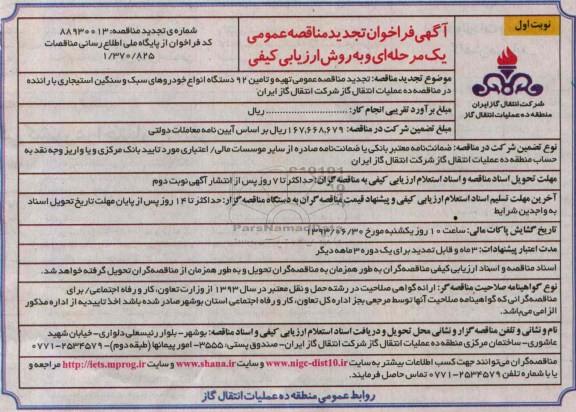 نوبت اول
آگهی فراخوان تجدید مناقصه عمومی
یک مرحله‌ای و به روش ارزیابی کیفی
شماره‌ی تجدید مناقصه: ۸۸۹۳۰۰۱۳
کد فراخوان از پایگاه ملی اطلاع رسانی مناقصات
۱/۳۷۰/۸۲۵
شرکت انتقال گاز ایران
منطقه ده عملیات انتقال گاز
موضوع تجدید مناقصه: تجدید مناقصه عمومی تهیه و تامین ۹۲ دستگاه انواع خودروهای سبک و سنگین استیجاری با راننده
در مناقصه ده عملیات انتقال گاز شرکت انتقال گاز ایران
مبلغ برآورد تقریبی انجام کار: ............................ ریال
مبلغ تضمین شرکت در مناقصه: ۱۶۷,۶۶۸,۶۷۹ ریال بر اساس آیین نامه معاملات دولتی
نوع تضمین شرکت در مناقصه: ضمانت‌نامه معتبر بانکی یا ضمانت‌نامه صادره از سایر موسسات مالی/ اعتباری مورد تایید بانک مرکزی و یا واریز وجه نقد به
حساب منطقه ده عملیات انتقال گاز شرکت انتقال گاز ایران
مهلت تحویل اسناد مناقصه و اسناد استعلام ارزیابی کیفی به مناقصه گران: حداکثر تا ۷ روز پس از انتشار آگهی نوبت دوم
آخرین مهلت تسلیم اسناد استعلام ارزیابی کیفی و پیشنهاد قیمت مناقصه گران به دستگاه مناقصه گزار: حداکثر تا ۱۴ روز پس از پایان مهلت تاریخ تحویل اسناد
به واجدین شرایط
تاریخ گشایش پاکات مالی: ساعت ۱۰ روز یکشنبه مورخ ۱۳۹۳/۰۶/۳۰
مدت اعتبار پیشنهادات: ۳ ماه و قابل تمدید برای یک دوره ۳ ماهه دیگر
اسناد مناقصه و اسناد ارزیابی کیفی مناقصه‌گران به طور همزمان به مناقصه‌گران تحویل و به طور همزمان از مناقصه‌گران تحویل گرفته خواهد شد.
نوع گواهینامه صلاحیت مناقصه گر: ارائه گواهی صلاحیت در رشته حمل و نقل معتبر در سال ۱۳۹۳ از وزارت تعاون، کار و رفاه اجتماعی/ برای
مناقصه‌گرانی که گواهینامه صلاحیت آنها توسط مرجعی بجز اداره کل تعاون، کار و رفاه اجتماعی استان بوشهر صادر شده باشد اخذ تاییدیه از اداره مذکور
الزامی می‌باشد.
نام و نشانی و تلفن مناقصه گزار و نشانی محل تحویل و دریافت اسناد استعلام ارزیابی کیفی و اسناد مناقصه: بوشهر- بلوار رئیسعلی دلواری- خیابان شهید
عاشوری- ساختمان مرکزی منطقه ده عملیات انتقال گاز ایران- صندوق پستی: ۳۵۵۵- امور پیمانها (طبقه دوم)- ۲۵۳۴۵۷۹-۰۷۷۱
مناقصه‌گران می‌توانند جهت کسب اطلاعات بیشتر به سایت www.nigc-dist10.ir و سایت www.shana.ir و سایت http://iets.mprog.ir مراجعه و
یا با شماره تلفن ۲۵۳۴۵۷۹-۰۷۷۱ تماس حاصل فرمایند.
روابط عمومی منطقه ده عملیات انتقال گاز